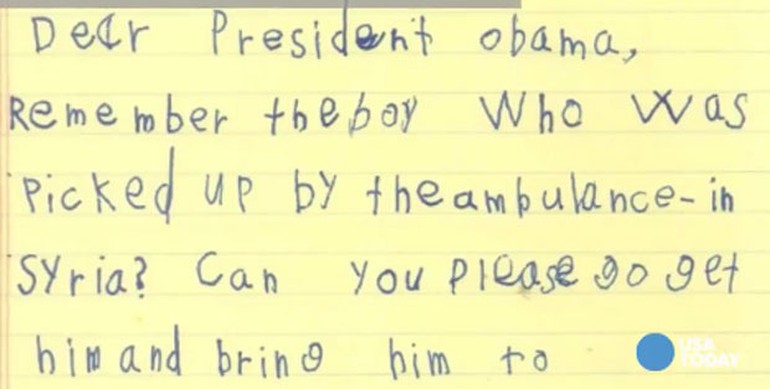 Dear President obama,
Remember the boy Who Was
Picked up by the ambulance-in
Syria? Can you please go get
him and bring him to
USA
TODAY